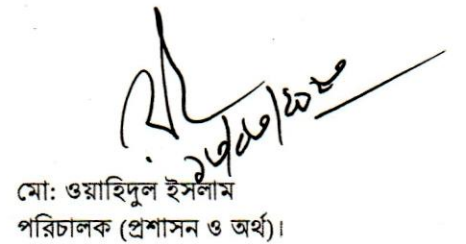 মো: ওয়াহিদুল ইসলাম
পরিচালক (প্রশাসন ও অর্থ)।